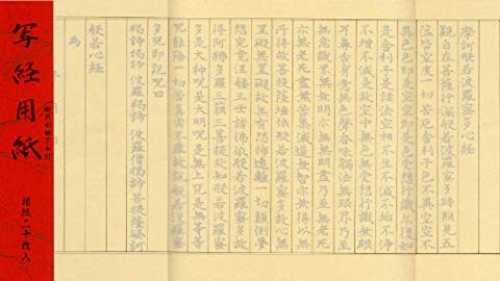 摩訶般若波羅蜜多心経
観自在菩薩行深般若波羅蜜多時照見五
蘊皆空度一切苦厄舎利子色不異空空不
異色色即是空空即是色受想行識亦復如
是舎利子是諸法空相不生不滅不垢不浄
不増不減是故空中無色無受想行識無眼
耳鼻舌身意無色声香味触法無眼界乃至
無意識界無無明亦無無明尽乃至無老死
亦無老死尽無苦集滅道無智亦無得以無
所得故菩提薩埵依般若波羅蜜多故心無
罣礙無罣礙故無有恐怖遠離一切顛倒夢
想究竟涅槃三世諸仏依般若波羅蜜多故
得阿耨多羅三藐三菩提故知般若波羅蜜
多是大神呪是大明呪是無上呪是無等等
呪能除一切苦真実不虚故説般若波羅蜜
多呪即説呪曰
羯諦羯諦 波羅羯諦 波羅僧羯諦 菩提薩婆訶
般若心経
為
写経用紙
二十枚入